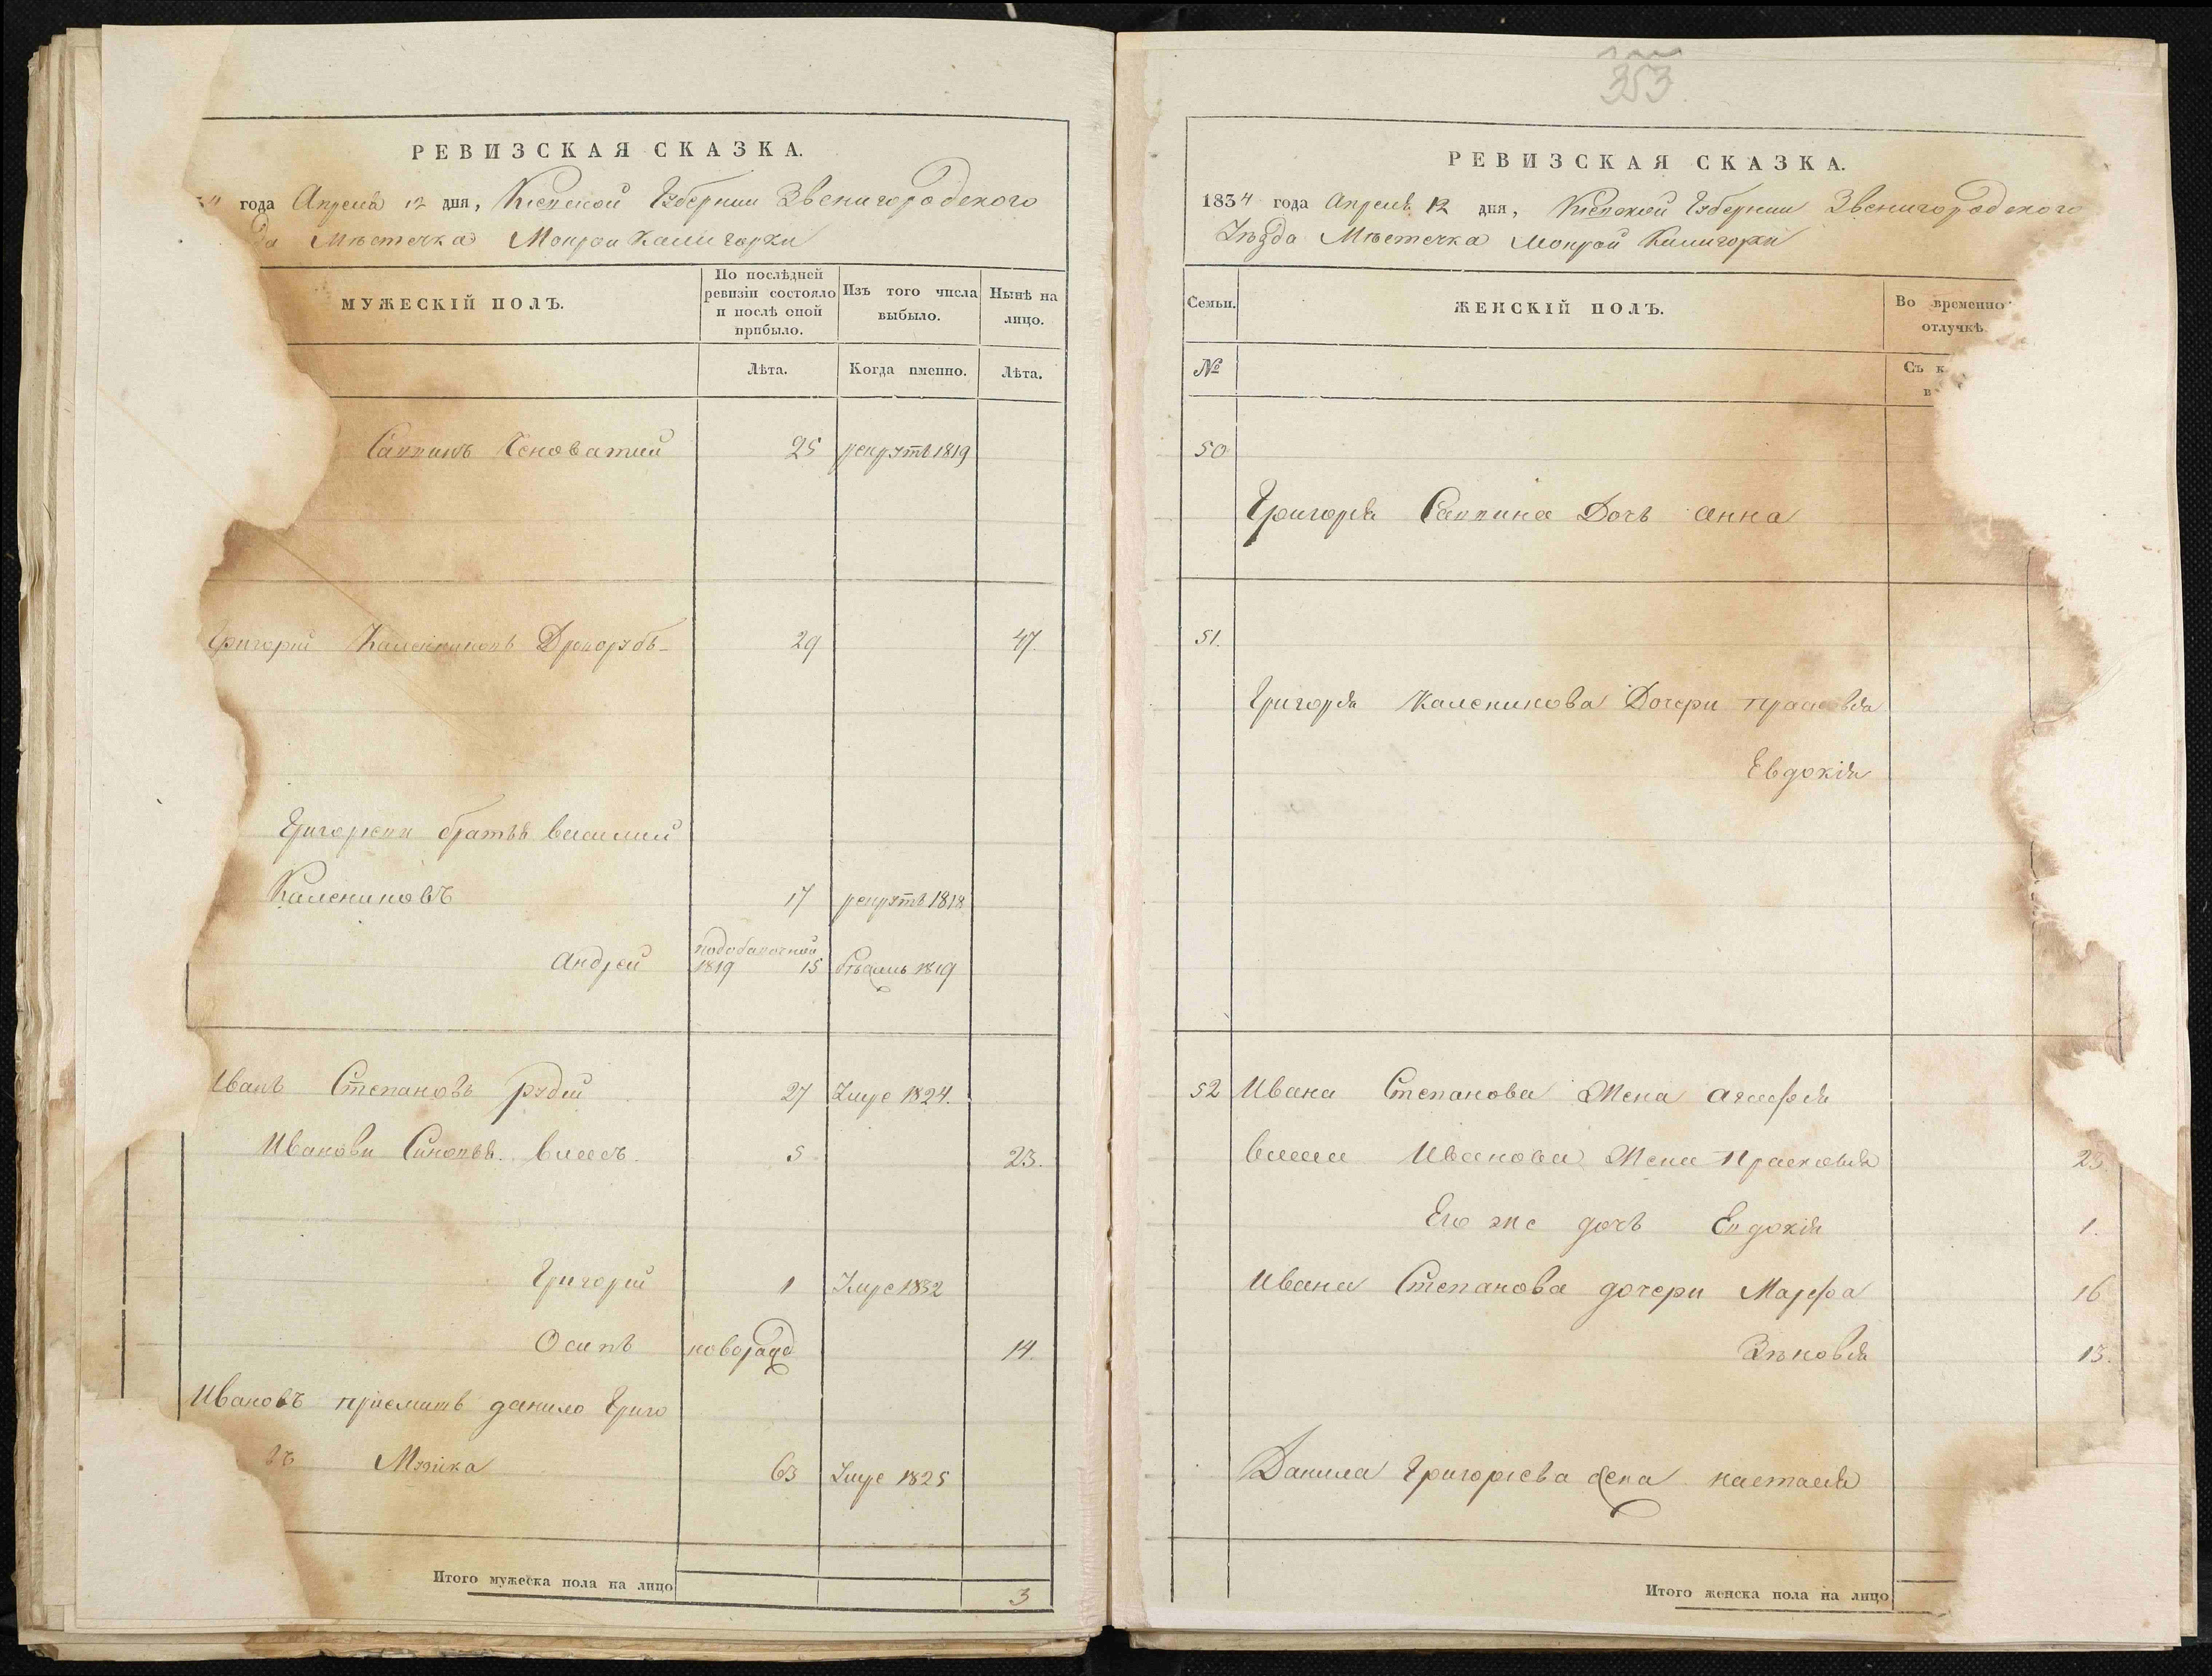 РЕВИЗСКАЯ СКАЗКА.
года Апреля 12 дня, Кіевской Губернии Звенигородского
Мѣстечка Мокрой Калигорки
МУЖЕСКІЙ ПОЛЪ.
По послѣдней ревизіи состояло и послѣ оной прибыло.
Изъ того числа выбыло.
Нынѣ на лицо.
Лѣта.
Когда именно.
Лѣта.
25 рекрутъ 1819
Григорий Калениковъ 29 47.
братья василий
Калениковъ 17 рекрутъ 1818
Андрей 1819 15 1819
Иванъ Степановъ рудий 27 Умре 1824.
Иванови Синовья. власъ 5 23.
Григорий 1 Умре 1832
Осипъ новорожд 14.
Ивановъ приемишъ данило Григо
въ 63 Умре 1825
Итого мужеска пола на лицо 3
353
РЕВИЗСКАЯ СКАЗКА.
1834 года Апреля 12 дня, Кіевской Губернии Звенигородского
Уѣзда Мѣстечка Мокрой Калигорки
Семьи.
ЖЕНСКІЙ ПОЛЪ.
Во временно отлучкѣ
№
Съ к
50
Григорія Дочъ анна
51.
Григорія Каленикова Дочери прасковія
Евдокія
52 Ивана Степанова Жена агафія
власа Иванова Жена Прасковія 23.
Его же дочъ Евдокія 1.
Ивана Степанова дочери Марфа 16
Зѣновія 13.
Данила Григорієва жена настасія
Итого женска пола на лицо